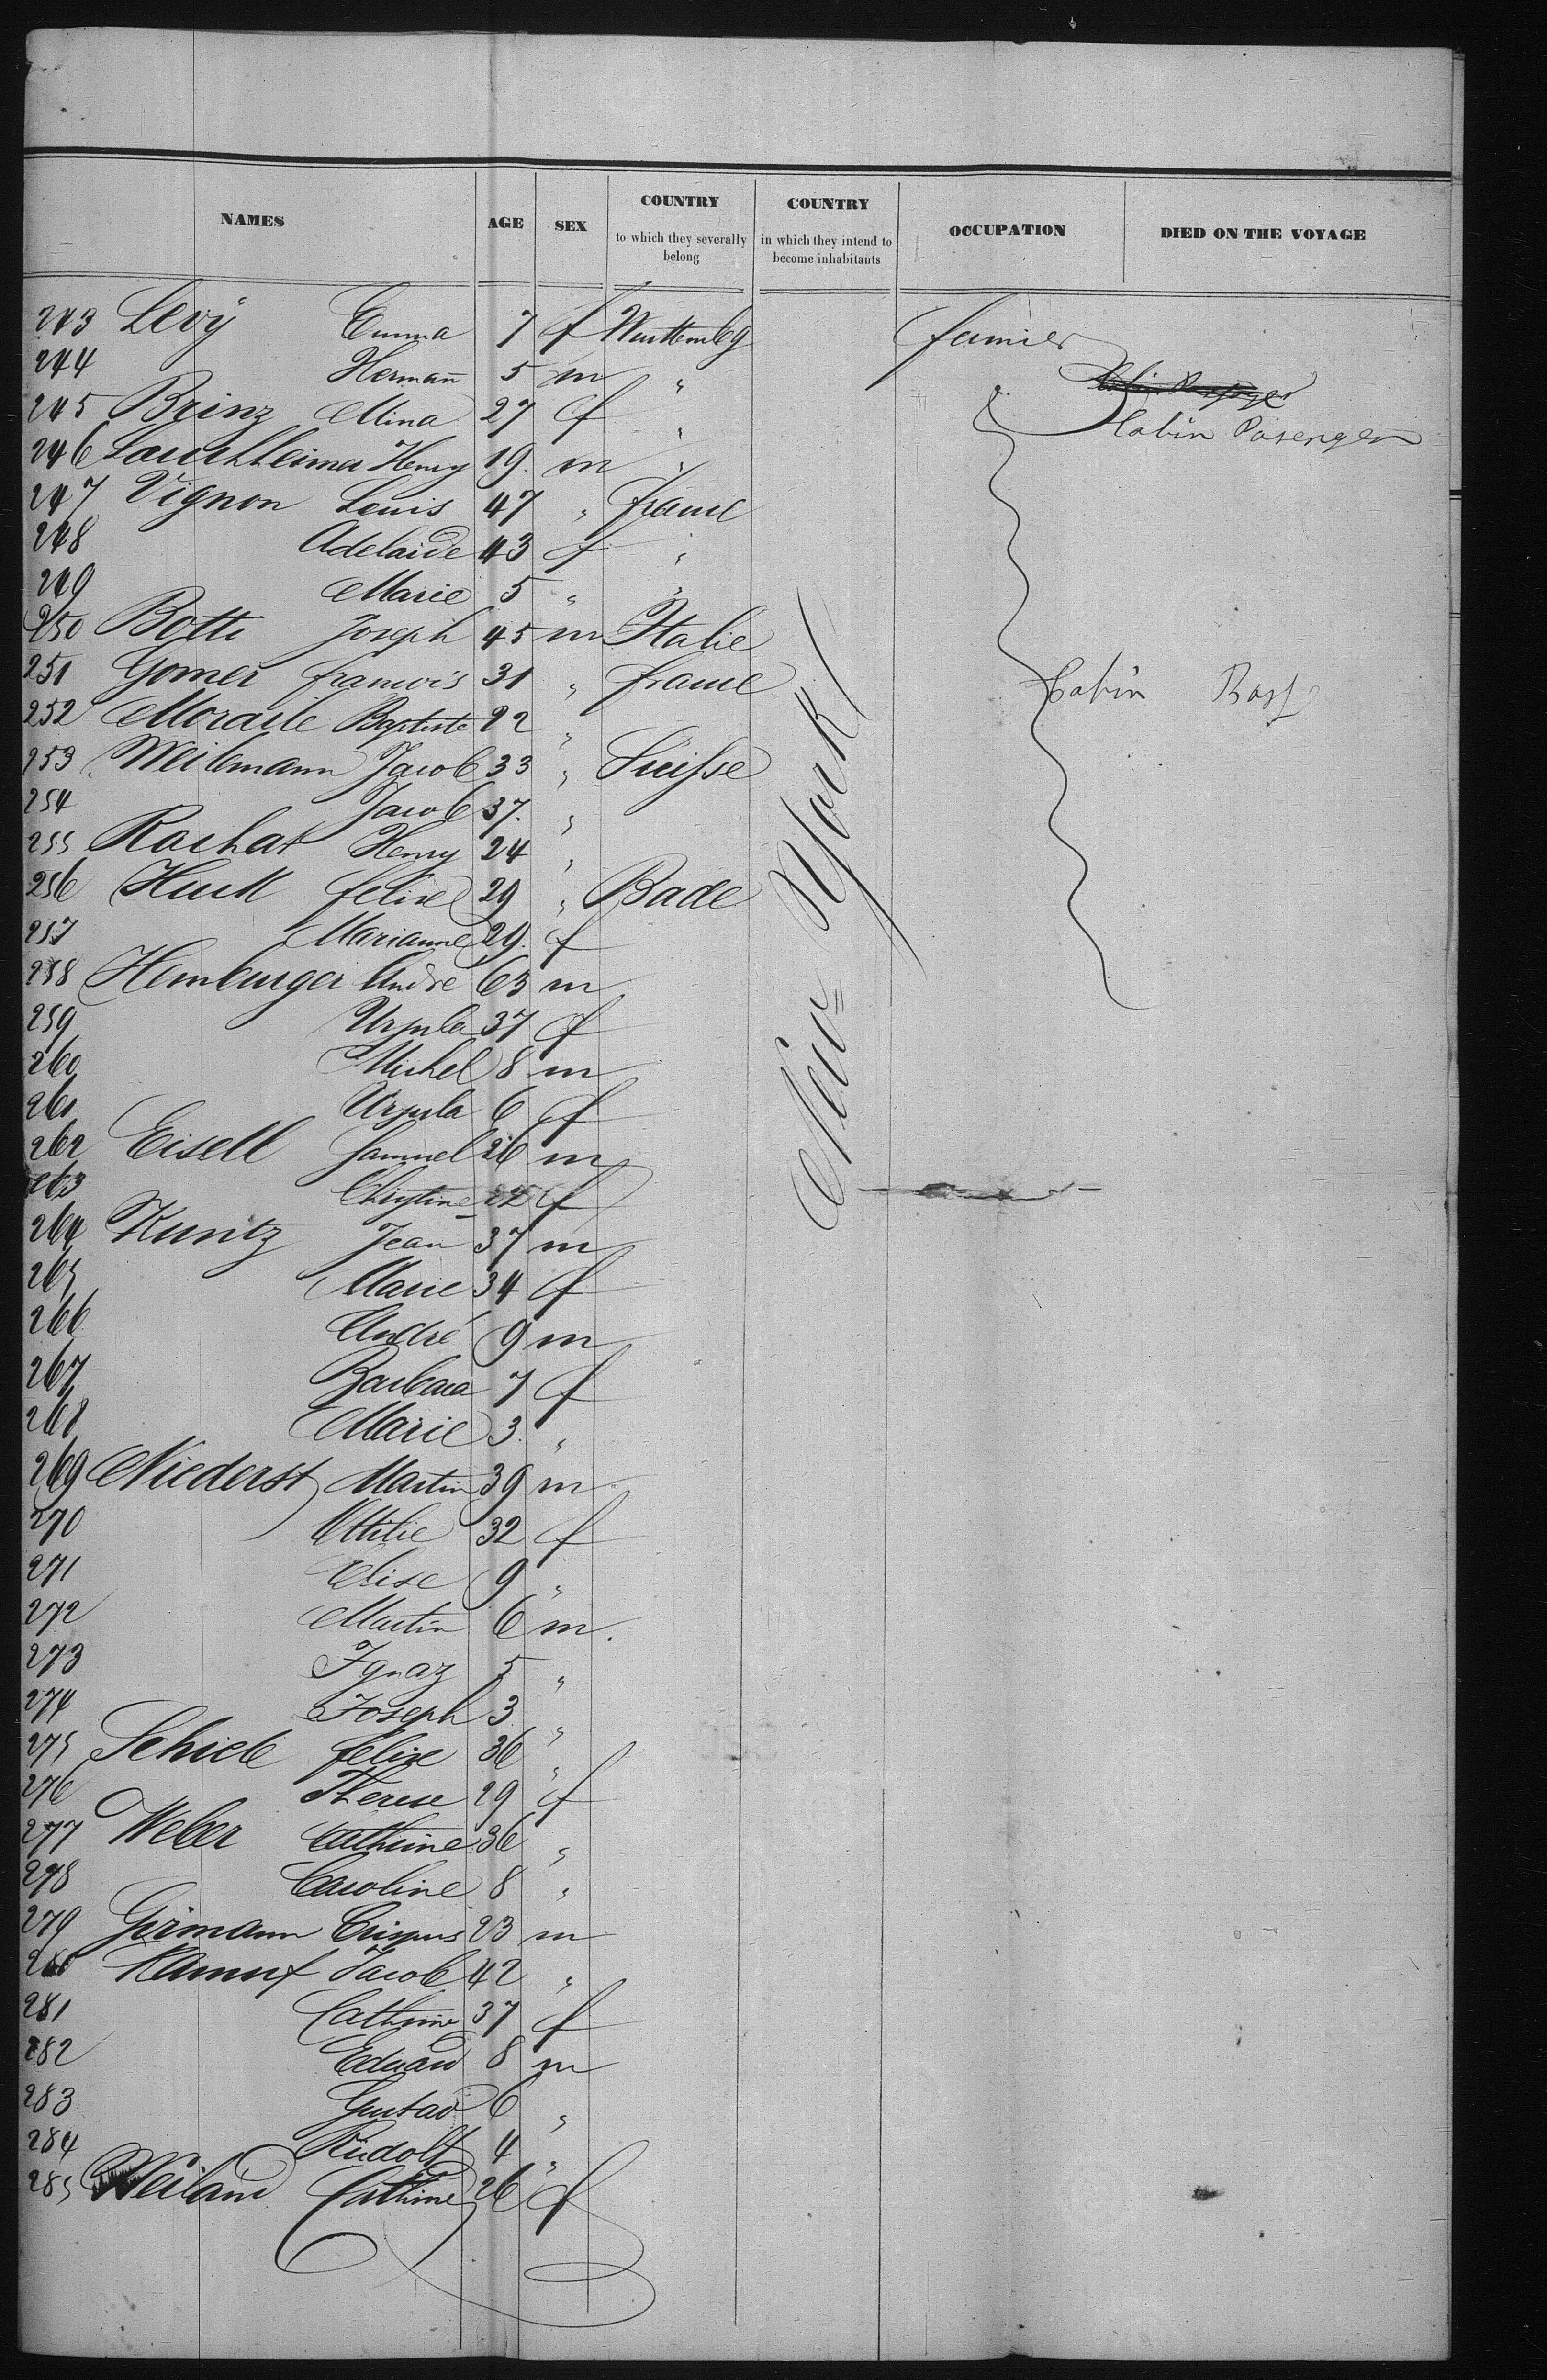 NAMES AGE SEX COUNTRY to which they severally belong COUNTRY in which they intend to become inhabitants OCCUPATION DIED ON THE VOYAGE
243 Levÿ Emma 7 f Wurttembg
244 Hermañ 5 m "
245 Brinz Mina 27 f "
Cabin Pasenger
246 Lauchheimer Henry 19. m "
247 Vignon Louis 47 " france
248 Adelaide 43 f "
249 Marie 5 " "
250 Botti Joseph 45 m Italie
251 Gomer francois 31 " france Cabin Pass
252 Baptiste 22 "
253 Weilemann Jacob 33 " Suisse
254 Jacob 37. "
255 Rachat Henry 24 "
256 Huck felixe 29 " Bade
257 Marianne 29. f
258 Hemburger Andre 63 m
259 Ursula 37 f
260 Michel 8 m
261 Ursula 6 f
262 Eisell Samuel 26 m
263 Chrystine 22 f
264 Kuntz Jean 37 m
265 Marie 34 f
266 André 9 m
267 Barbara 7 f
268 Marie 3. "
269 Niederst Martin 39 m
270 Ottilie 32 f
271 Elise 9 "
272 Martin 6 m.
273 Ignaz 5 "
274 Joseph 3 "
275 Schieb felixe 36 "
276 Therese 29 f
277 Weber Catherine 36 "
278 Caroline 8 "
279 Girmann Crispus 23 m
280 Kamuf Jacob 42 "
281 Cathrine 37 f
282 Eduard 8 m
283 Gustav 6 "
284 Rudolf 4 "
285 Weiland Cathrine 26 f
New=York